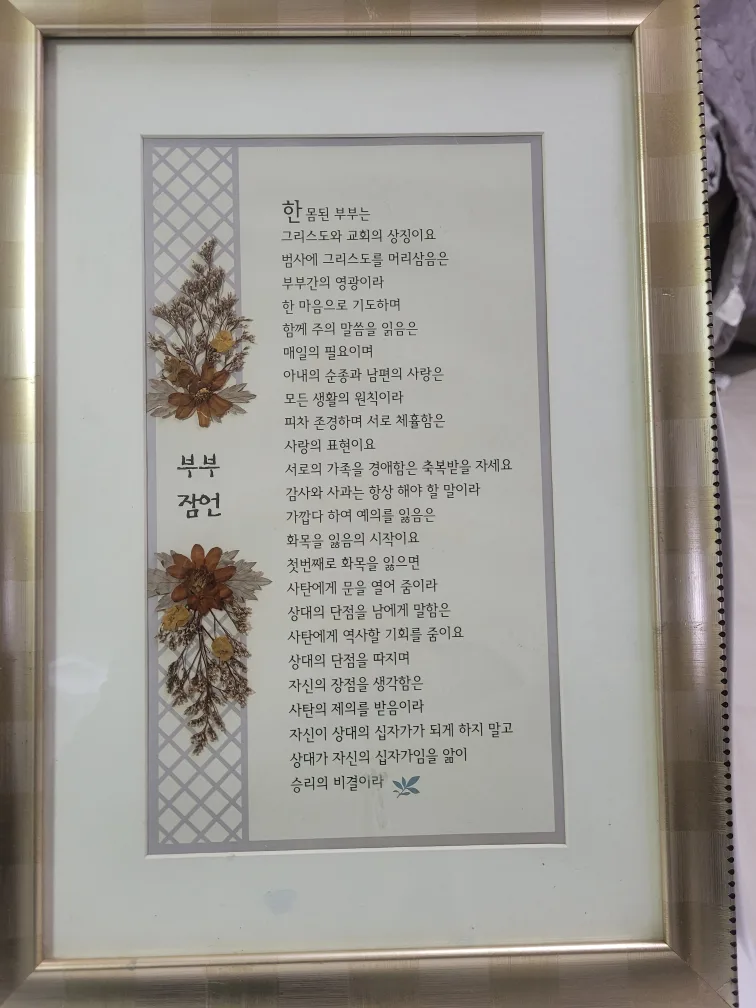 부부
잠언
한 몸된 부부는
그리스도와 교회의 상징이요
범사에 그리스도를 머리삼음은
부부간의 영광이라
한 마음으로 기도하며
함께 주의 말씀을 읽음은
매일의 필요이며
아내의 순종과 남편의 사랑은
모든 생활의 원칙이라
피차 존경하며 서로 체휼함은
사랑의 표현이요
서로의 가족을 경애함은 축복받을 자세요
감사와 사과는 항상 해야 할 말이라
가깝다 하여 예의를 잃음은
화목을 잃음의 시작이요
첫번째로 화목을 잃으면
사탄에게 문을 열어 줌이라
상대의 단점을 남에게 말함은
사탄에게 역사할 기회를 줌이요
상대의 단점을 따지며
자신의 장점을 생각함은
사탄의 제의를 받음이라
자신이 상대의 십자가가 되게 하지 말고
상대가 자신의 십자가임을 앎이
승리의 비결이라